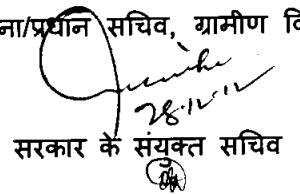 ना/प्रधान सचिव, ग्रामीण
28.12.12
सरकार के संयुक्त सचिव